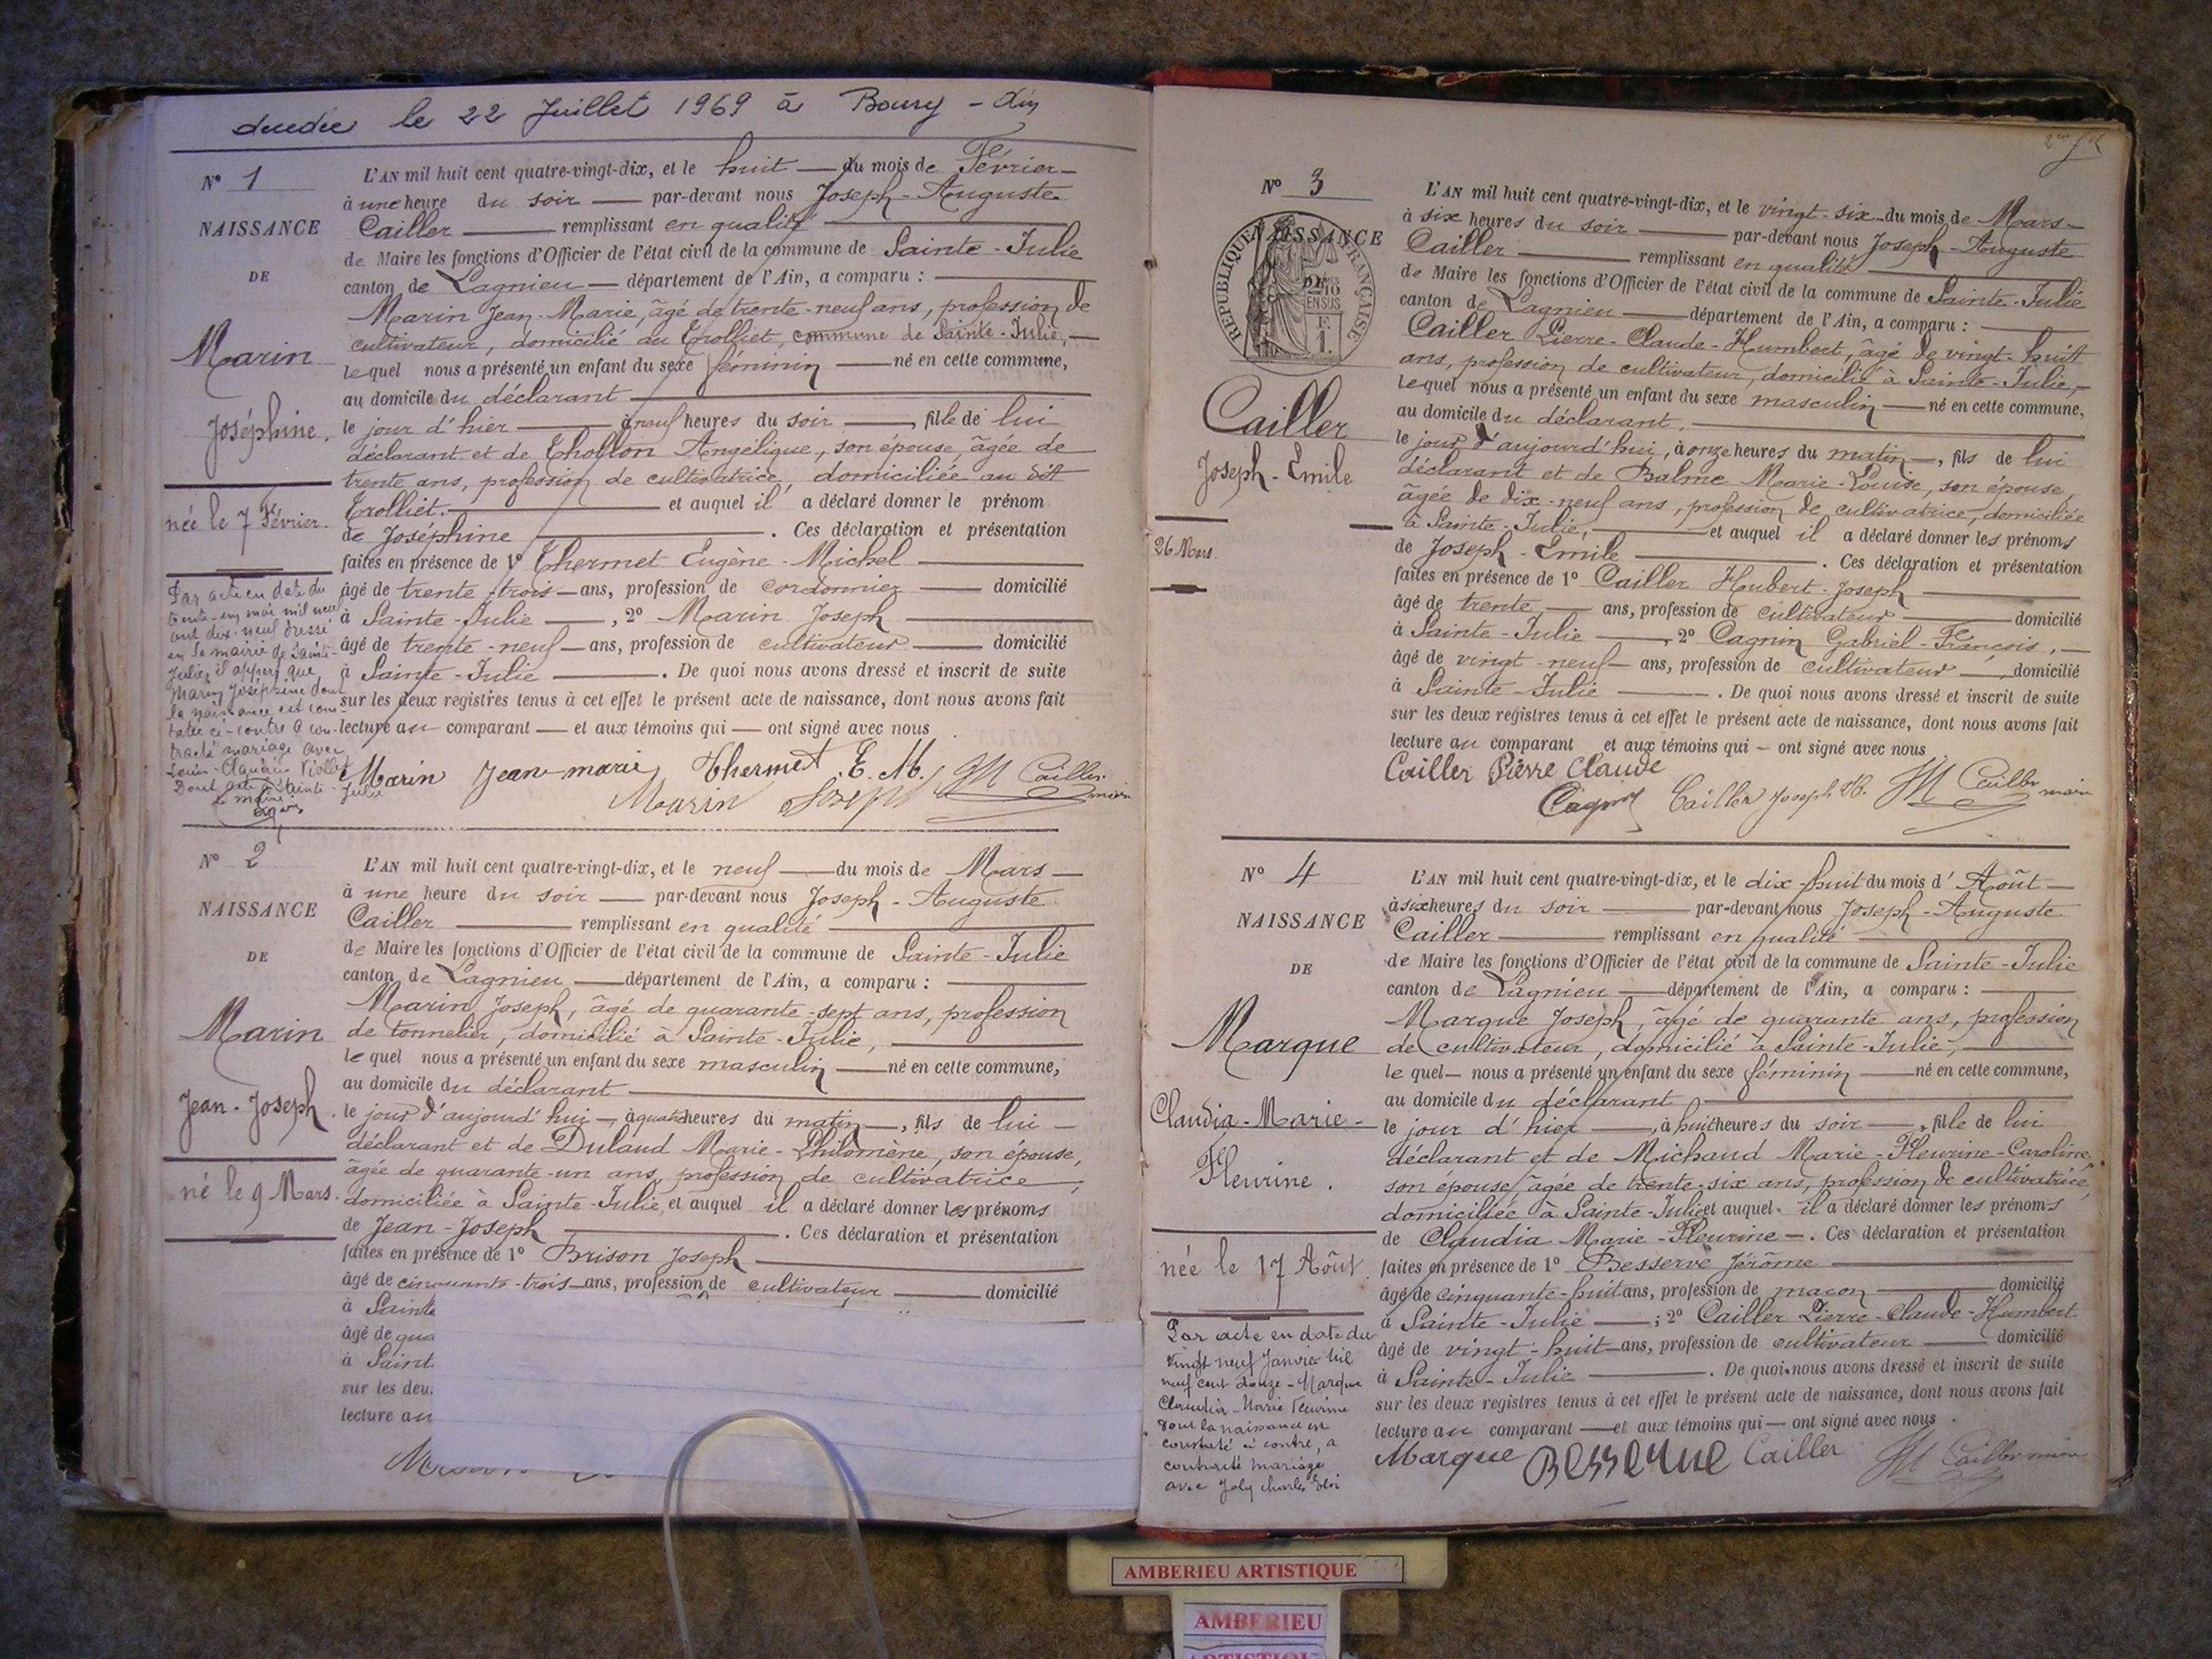 décédée le 22 Juillet 1969 à Bourg - Ain
N° 1
NAISSANCE
DE
Marin
Joséphine.
née le 7 Février.
Par acte en date du
trente-un mai mil neuf
cent dix-neuf dressé
en la mairie de Sainte-
Julie, il appert que
Marin Joséphine dont
la naissance est cons-
tatée ci-contre a con-
tracté mariage avec
Louis-Claudius Viollet
Dont acte à Sainte-Julie
Le maire
L'AN mil huit cent quatre-vingt-dix, et le huit du mois de Février
à une heure du soir par-devant nous Joseph-Auguste
Cailler remplissant en qualité
de Maire les fonctions d'Officier de l'état civil de la commune de Sainte-Julie
canton de Lagnieu département de l'Ain, a comparu :
Marin Jean-Marie, âgé de trente-neuf ans, profession de
cultivateur, domicilié au Trolliet, commune de Sainte-Julie,
lequel nous a présenté un enfant du sexe féminin né en cette commune,
au domicile du déclarant
le jour d'hier à neuf heures du soir, fille de lui
déclarant et de Thollon Angélique, son épouse, âgée de
trente ans, profession de cultivatrice, domiciliée au dit
Trolliet. et auquel il a déclaré donner le prénom
de Joséphine. Ces déclaration et présentation
faites en présence de 1° Thermet Eugène-Michel
âgé de trente-trois ans, profession de cordonnier domicilié
à Sainte-Julie, 2° Marin Joseph
âgé de trente-neuf ans, profession de cultivateur domicilié
à Sainte-Julie. De quoi nous avons dressé et inscrit de suite
sur les deux registres tenus à cet effet le présent acte de naissance, dont nous avons fait
lecture au comparant et aux témoins qui ont signé avec nous
Marin Jean-marie Thermet E. M. Cailler maire
Marin Joseph
N° 2
NAISSANCE
DE
Marin
Jean-Joseph.
né le 9 Mars.
L'AN mil huit cent quatre-vingt-dix, et le neuf du mois de Mars
à une heure du soir par-devant nous Joseph-Auguste
Cailler remplissant en qualité
de Maire les fonctions d'Officier de l'état civil de la commune de Sainte-Julie
canton de Lagnieu département de l'Ain, a comparu :
Marin Joseph, âgé de quarante-sept ans, profession
de tonnelier, domicilié à Sainte-Julie,
lequel nous a présenté un enfant du sexe masculin né en cette commune,
au domicile du déclarant
le jour d'aujourd'hui, à quatre heures du matin, fils de lui
déclarant et de Dulaud Marie-Philomène, son épouse,
âgée de quarante-un ans, profession de cultivatrice,
domiciliée à Sainte-Julie, et auquel il a déclaré donner les prénoms
de Jean-Joseph. Ces déclaration et présentation
faites en présence de 1° Brison Joseph
âgé de cinquante-trois ans, profession de cultivateur domicilié
à Sainte
âgé de qua
à Saint
sur les deu
lecture au
N° 3
NAISSANCE
DE
REPUBLIQUE FRANÇAISE
Cailler
Joseph-Emile
26 Mars.
L'AN mil huit cent quatre-vingt-dix, et le vingt-six du mois de Mars
à six heures du soir par-devant nous Joseph-Auguste
Cailler remplissant en qualité
de Maire les fonctions d'Officier de l'état civil de la commune de Sainte-Julie
canton de Lagnieu département de l'Ain, a comparu :
Cailler Pierre-Claude-Humbert, âgé de vingt-huit
ans, profession de cultivateur, domicilié à Sainte-Julie,
lequel nous a présenté un enfant du sexe masculin né en cette commune,
au domicile du déclarant.
le jour d'aujourd'hui, à onze heures du matin, fils de lui
déclarant et de Balme Marie-Louise, son épouse,
âgée de dix-neuf ans, profession de cultivatrice, domiciliée
à Sainte-Julie, et auquel il a déclaré donner les prénoms
de Joseph-Emile. Ces déclaration et présentation
faites en présence de 1° Cailler Hubert-Joseph
âgé de trente ans, profession de cultivateur domicilié
à Sainte-Julie, 2° Cagnin Gabriel-François,
âgé de vingt-neuf ans, profession de cultivateur, domicilié
à Sainte-Julie. De quoi nous avons dressé et inscrit de suite
sur les deux registres tenus à cet effet le présent acte de naissance, dont nous avons fait
lecture au comparant et aux témoins qui ont signé avec nous
Cailler Pierre Claude
Cailler Joseph Cailler maire
N° 4
NAISSANCE
DE
Marque
Claudia-Marie-
Fleurine.
née le 17 Août.
Par acte en date du
vingt neuf Janvier mil
neuf cent douze - Marque
Claudia-Marie Fleurine
dont la naissance est
constaté ci contre, a
contracté mariage
avec Joly Charles Eloi
L'AN mil huit cent quatre-vingt-dix, et le dix-huit du mois d'Août
à six heures du soir par-devant nous Joseph-Auguste
Cailler remplissant en qualité
de Maire les fonctions d'Officier de l'état civil de la commune de Sainte-Julie
canton de Lagnieu département de l'Ain, a comparu :
Marque Joseph, âgé de quarante ans, profession
de cultivateur, domicilié à Sainte-Julie,
lequel nous a présenté un enfant du sexe féminin né en cette commune,
au domicile du déclarant
le jour d'hier, à huit heures du soir, fille de lui
déclarant et de Michaud Marie-Fleurine-Caroline,
son épouse, âgée de trente-six ans, profession de cultivatrice,
domiciliée à Sainte-Julie et auquel il a déclaré donner les prénoms
de Claudia Marie-Fleurine. Ces déclaration et présentation
faites en présence de 1° Besserve Jérôme
âgé de cinquante-huit ans, profession de maçon domicilié
à Sainte-Julie ; 2° Cailler Pierre-Claude-Humbert
âgé de vingt-huit ans, profession de cultivateur domicilié
à Sainte-Julie. De quoi nous avons dressé et inscrit de suite
sur les deux registres tenus à cet effet le présent acte de naissance, dont nous avons fait
lecture au comparant et aux témoins qui ont signé avec nous.
Marque Besserve Cailler Cailler maire
AMBERIEU ARTISTIQUE
AMBERIEU
ARTISTIQUE